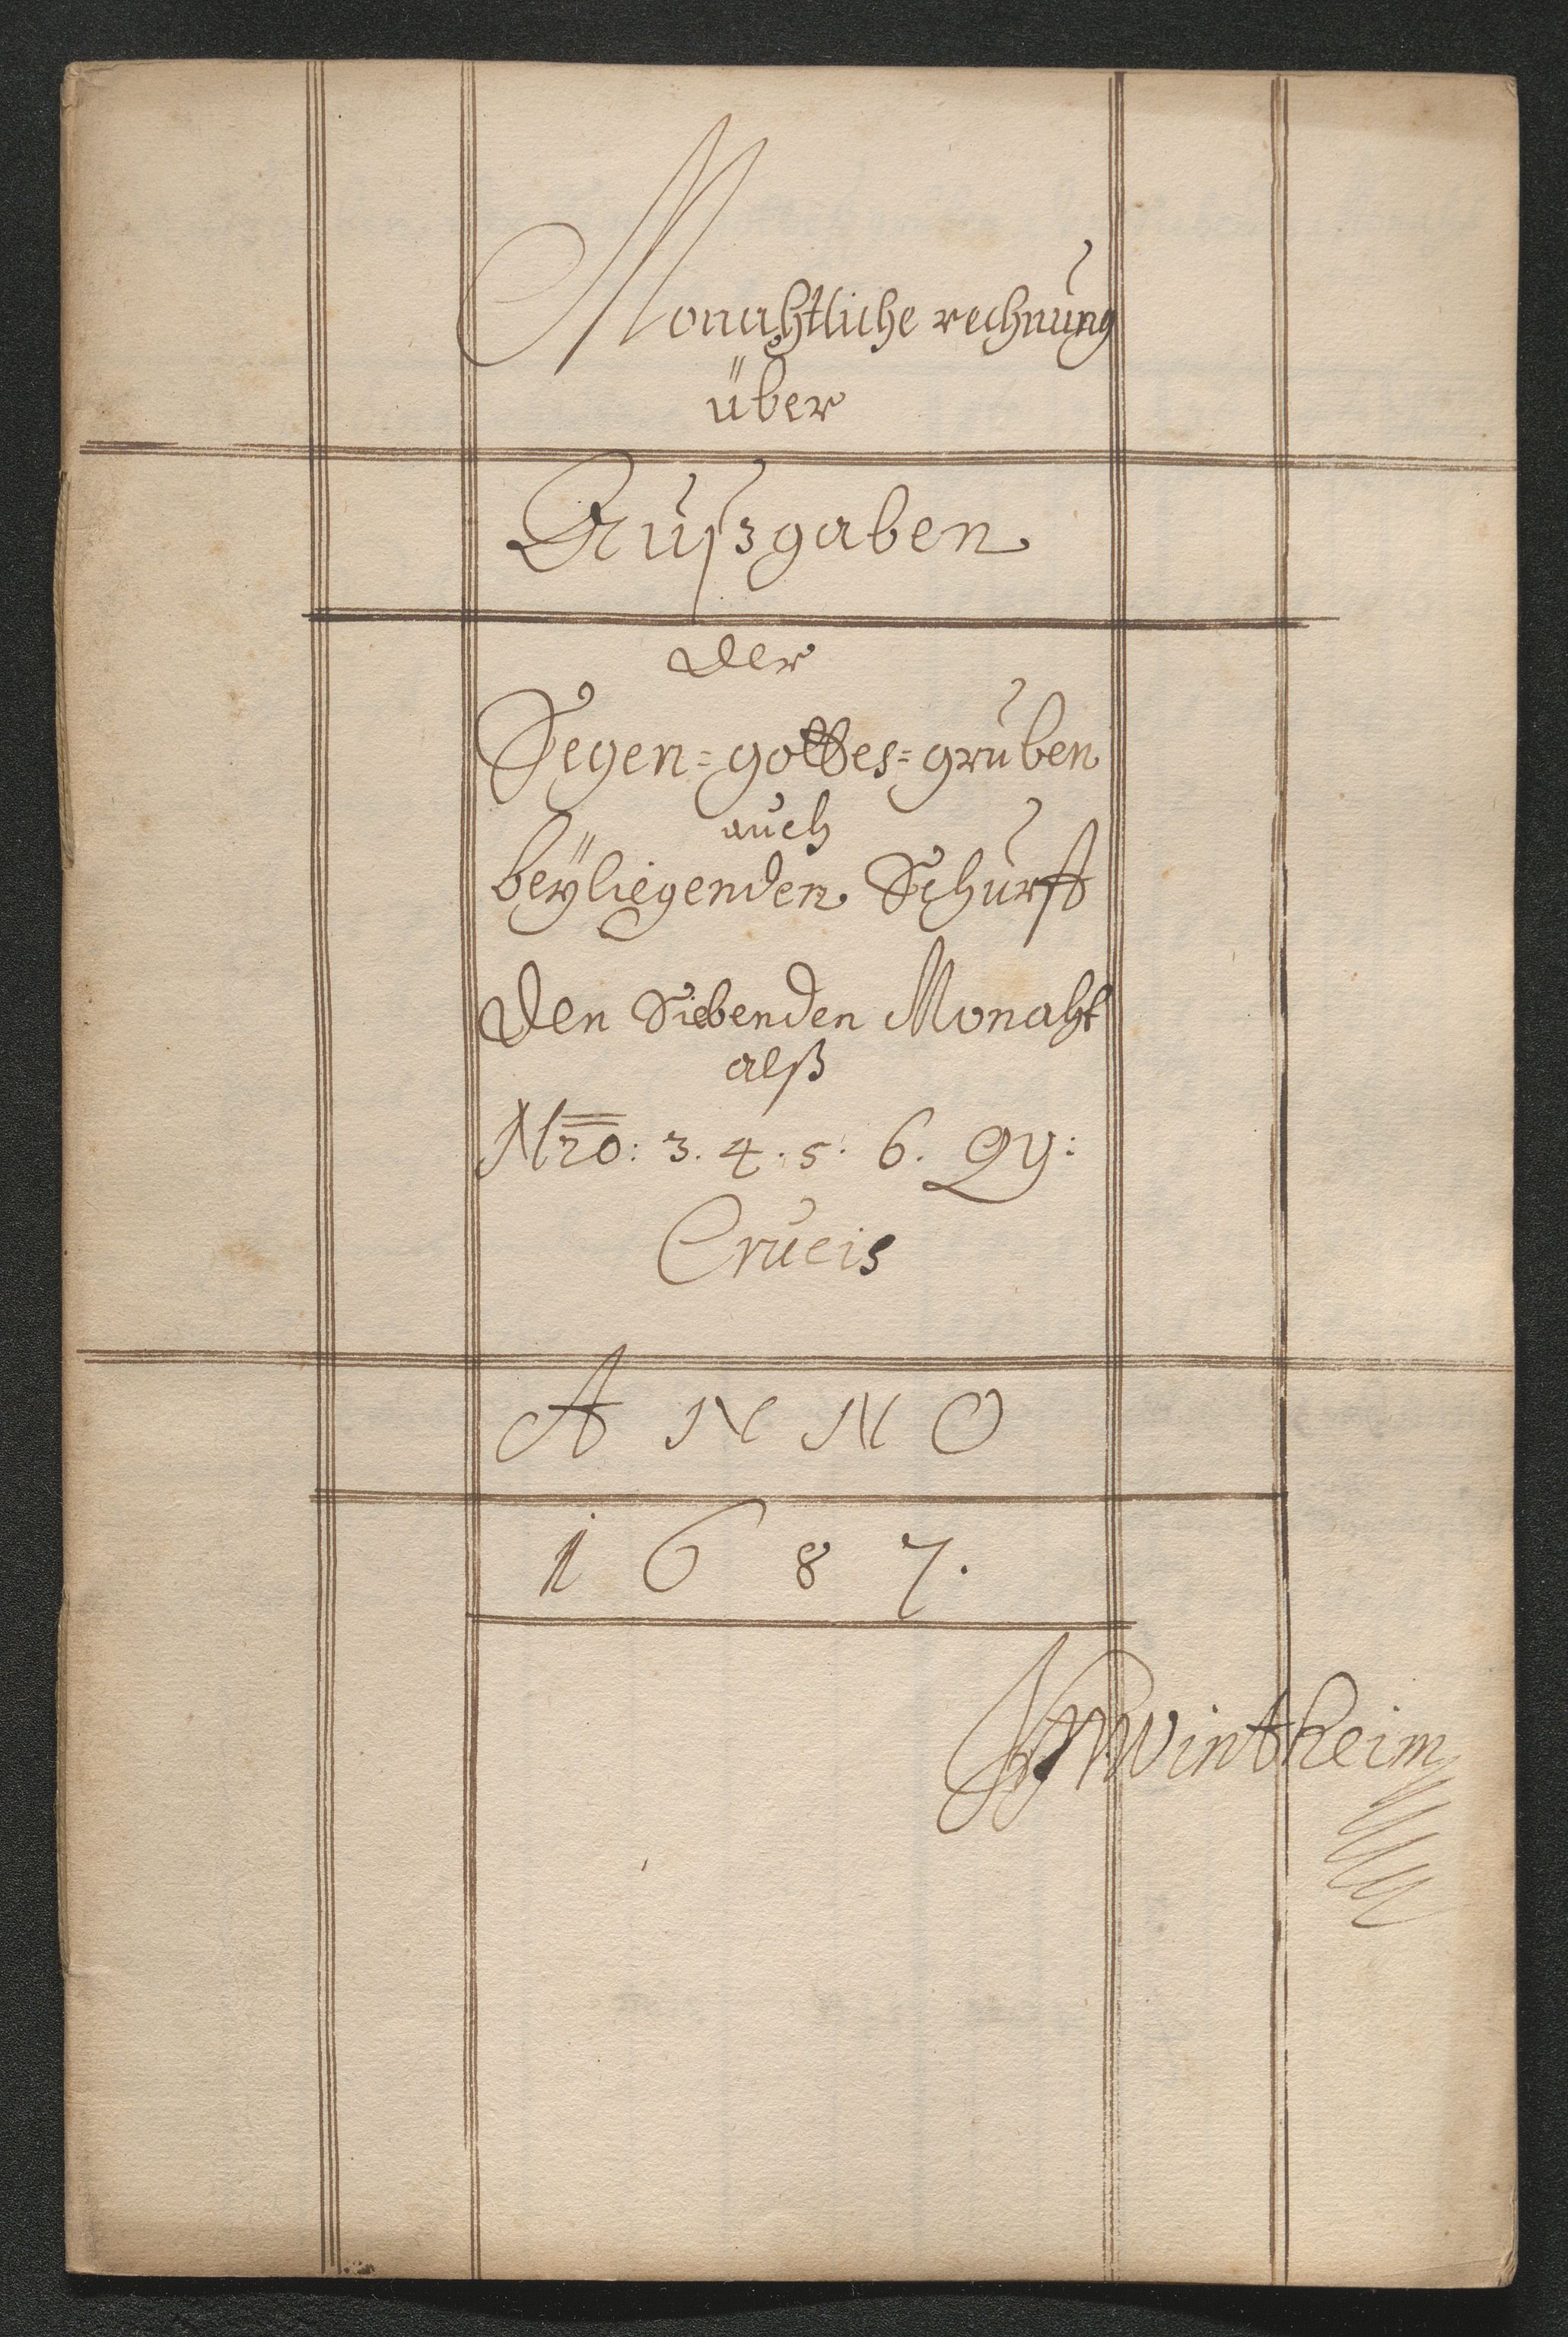 Monahtliche rechnung
über
Außgaben
der
Segen=gottes=gruben
auch
beÿliegenden Schurft
den Siebenden Monaht
alß
Nro: 3. 4. 5. 6. Qy:
Crucis
ANNO
1687.
Wintheim